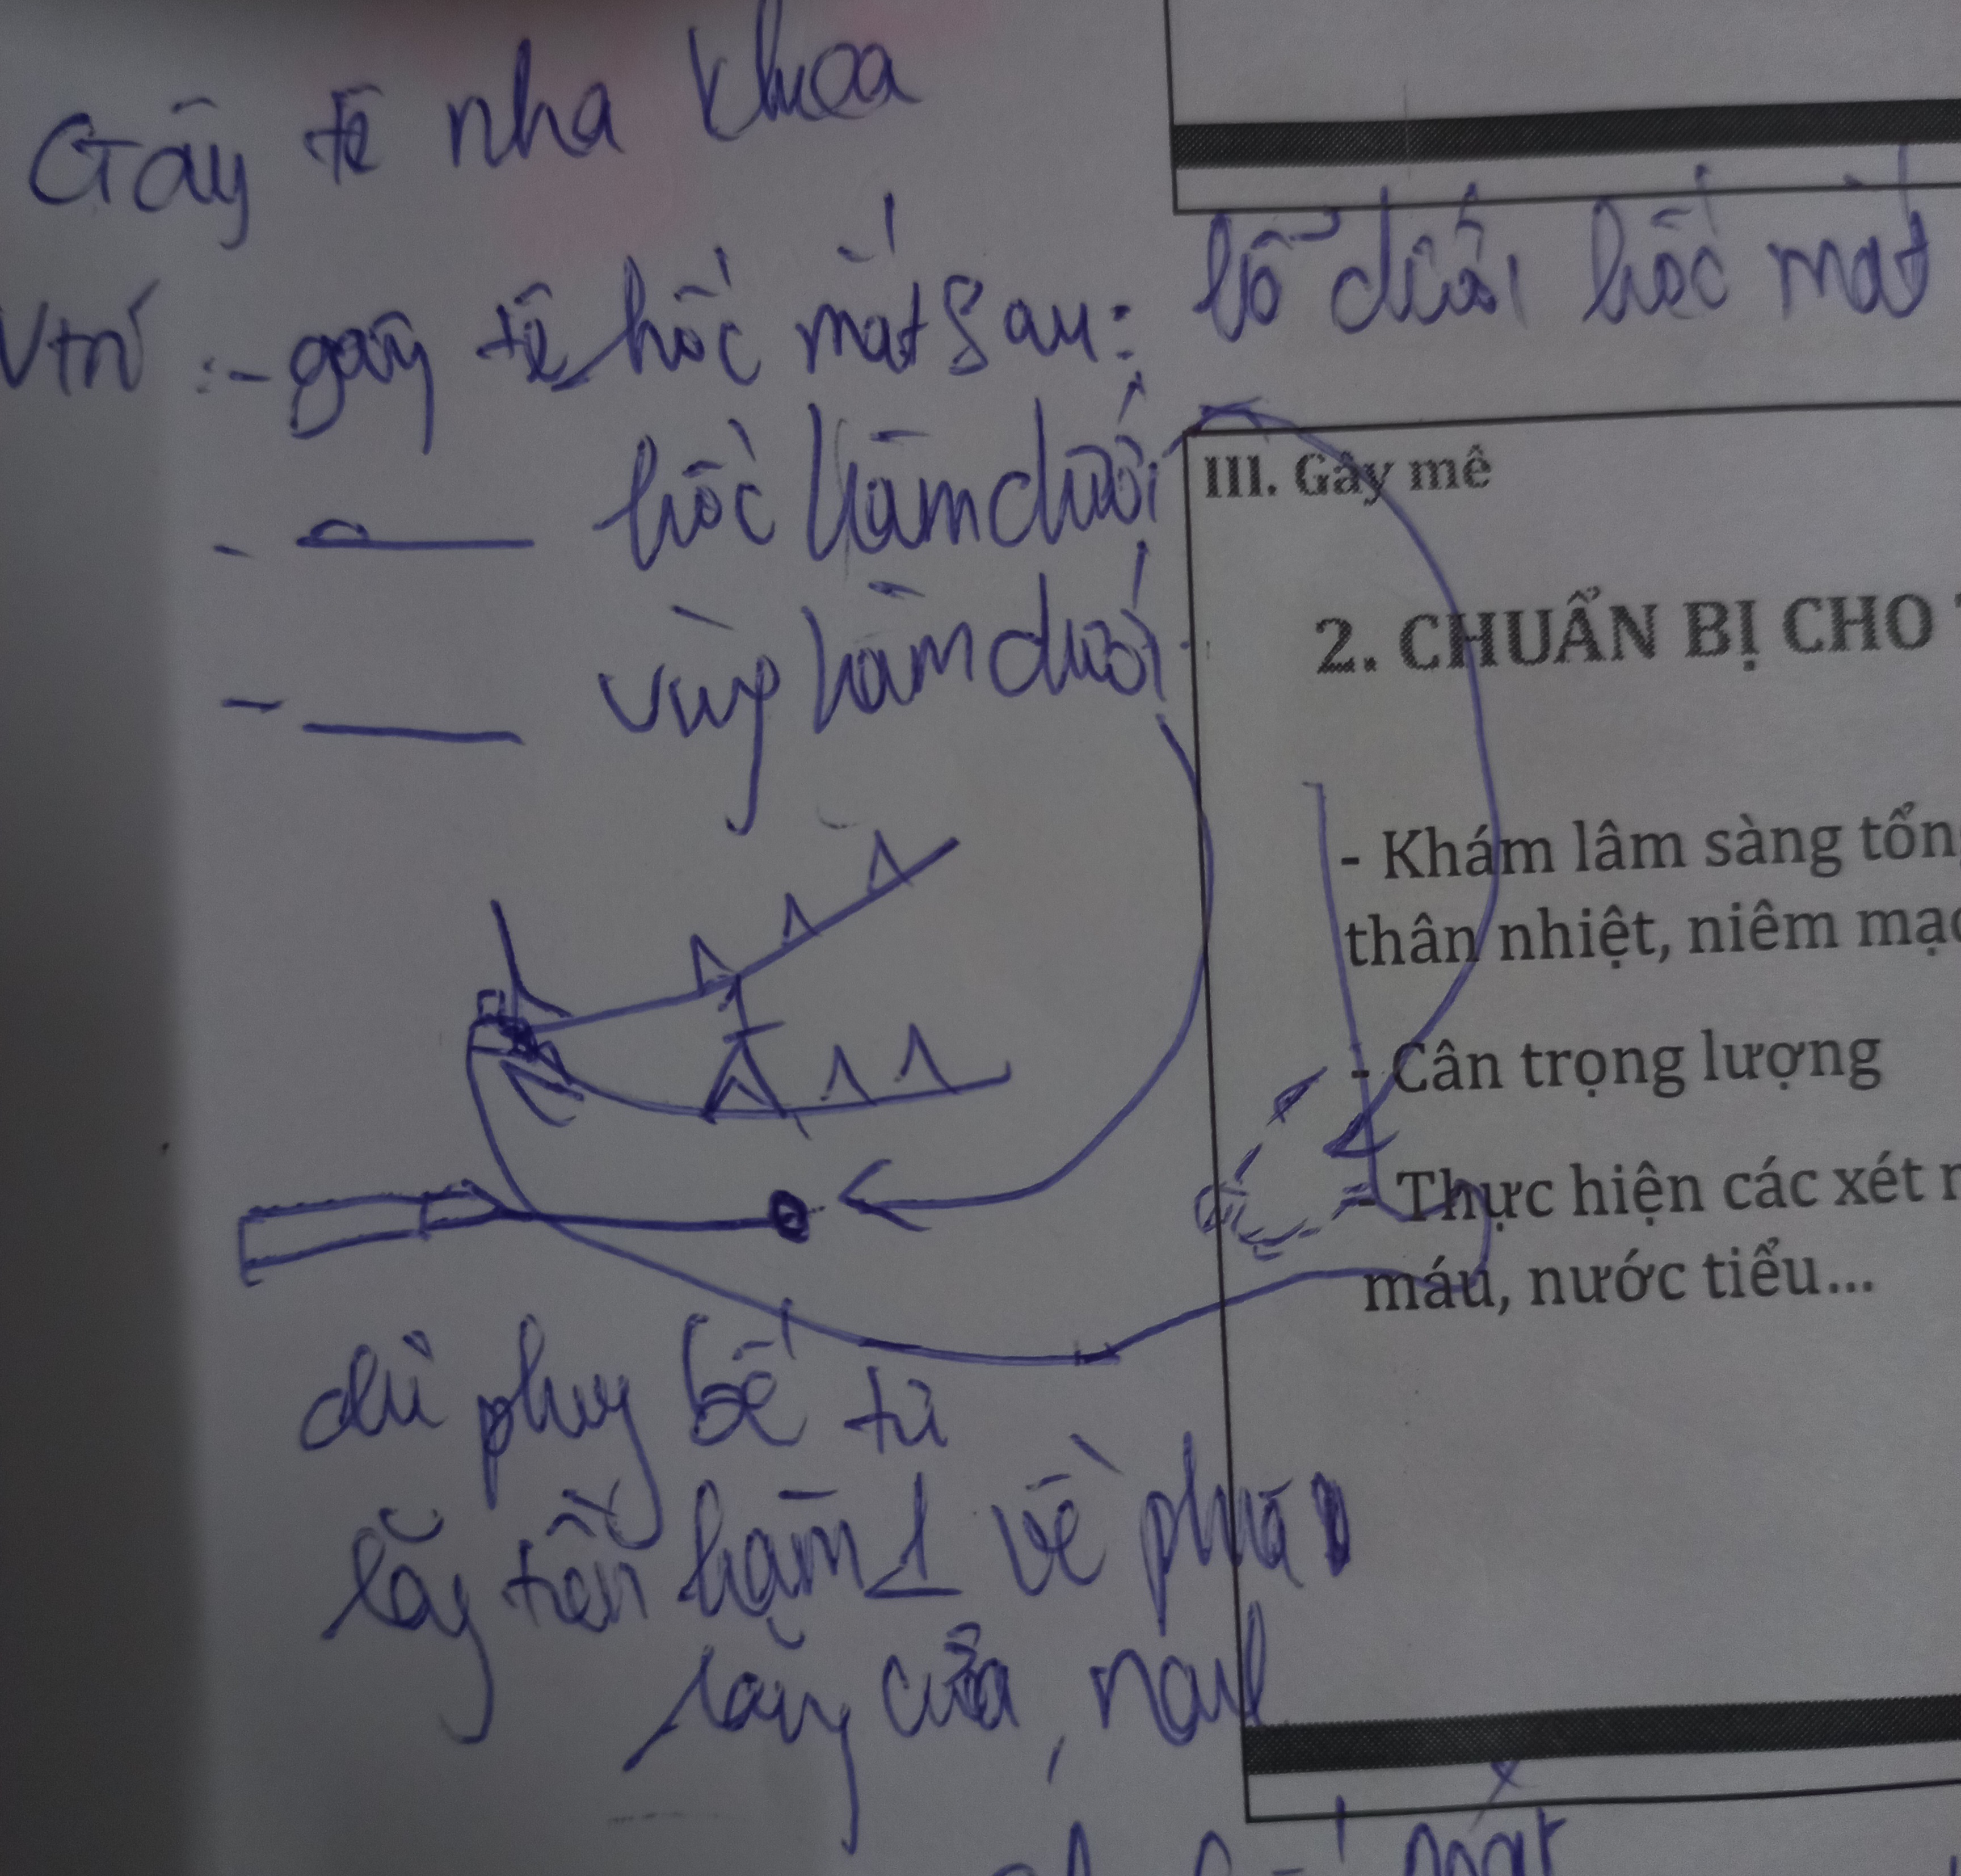 Gây tê nha khoa
Vtrí :- gây tê hốc mắt sau: lỗ dưới hốc mắt
- hốc hàm dưới
- vùng hàm dưới
III. Gây mê
2. CHUẨN BỊ CHO
- Khám lâm sàng tổn
thân nhiệt, niêm mạ
- Cân trọng lượng
- Thực hiện các xét n
máu, nước tiểu...
bế từ
hàm về phía
răng cửa,